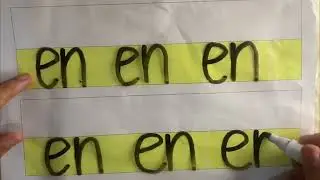 en en en
en en